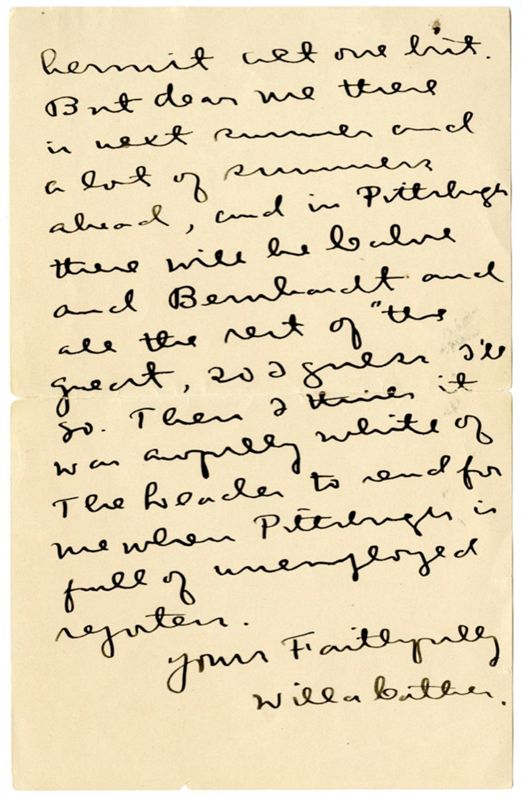 hermit act one bit.
But dear me there
is next summer and
a lot of summers
ahead, and in Pittsburgh
there will be Calve
and Bernhardt and
all the rest of "the
great, so I guess I'll
go. Then I think it
was awfully white of
The Leader to send for
me when Pittsburgh is
full of unemployed
reporters.
Yours Faithfully
Willa Cather.